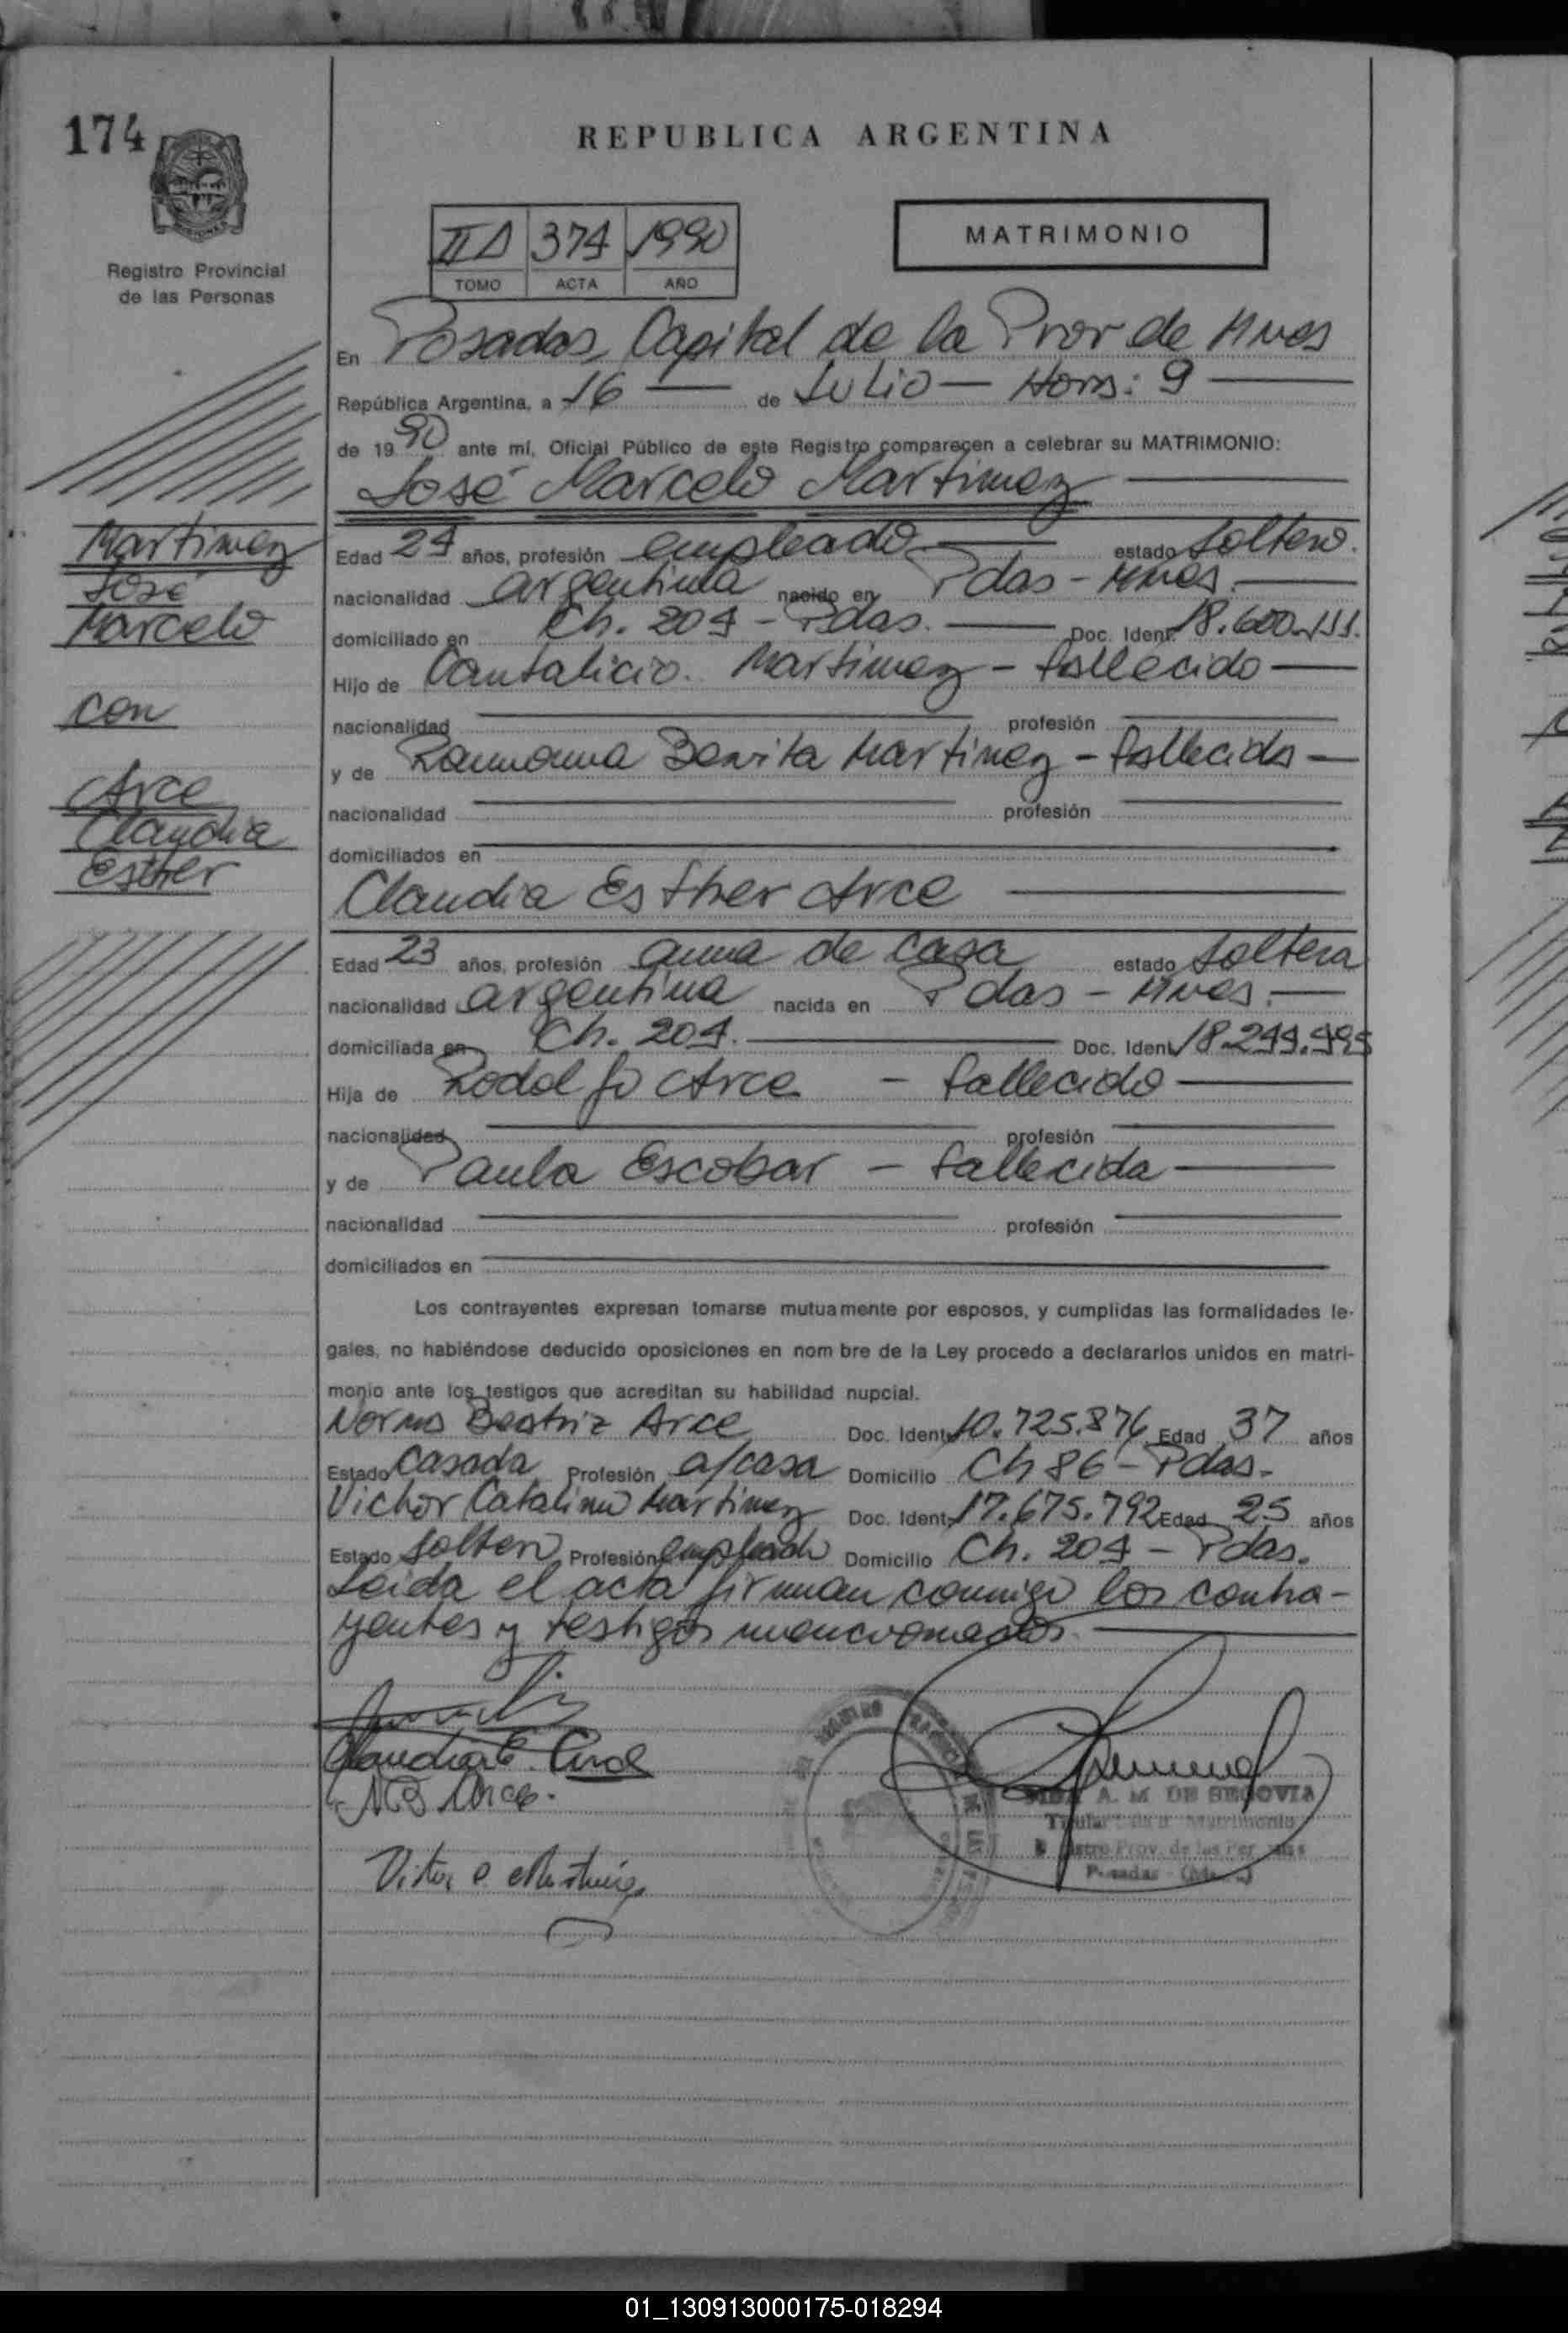 174
REPUBLICA ARGENTINA
Registro Provincial
de las Personas
374 1990
TOMO ACTA AÑO
MATRIMONIO
En Posadas, Capital de la Prov de Mnes
República Argentina, a 16 de Julio Hora: 9
de 1990 ante mí, Oficial Público de este Registro comparecen a celebrar su MATRIMONIO:
José Marcelo Martinez
Martinez
José
Marcelo
con
Arce
Claudia
Esther
Edad 24 años, profesión empleado estado soltero.
nacionalidad argentina nacido en Pdas - Mnes.
domiciliado en Ch. 204 - Pdas. Doc. Ident. 18.600.111.
Hijo de Cantalicio Martinez - fallecido
nacionalidad profesión
y de Ramona Benita Martinez - fallecida
nacionalidad profesión
domiciliados en
Claudia Esther Arce
Edad 23 años, profesión ama de casa estado soltera
nacionalidad argentina nacida en Pdas - Mnes.
domiciliada en Ch. 204. Doc. Ident. 18.244.995
Hija de Rodolfo Arce - fallecido
nacionalidad profesión
y de Paula Escobar - fallecida
nacionalidad profesión
domiciliados en
Los contrayentes expresan tomarse mutuamente por esposos, y cumplidas las formalidades le-
gales, no habiéndose deducido oposiciones en nom bre de la Ley procedo a declararlos unidos en matri-
monio ante los testigos que acreditan su habilidad nupcial.
Norma Beatriz Arce Doc. Ident. 10.725.876 Edad 37 años
Estado casada Profesión a/casa Domicilio Ch 86 - Pdas.
Victor Catalino Martinez Doc. Ident. 17.675.792 Edad 25 años
Estado soltero Profesión empleado Domicilio Ch. 204 - Pdas.
Leida el acta firman conmigo los contra-
yentes y testigos mencionados
Claudia E. Arce
NB Arce.
A. M DE SEGOVIA
Titular Matrimonio
Prov. de las Per
Victor C Martinez
01_130913000175-018294